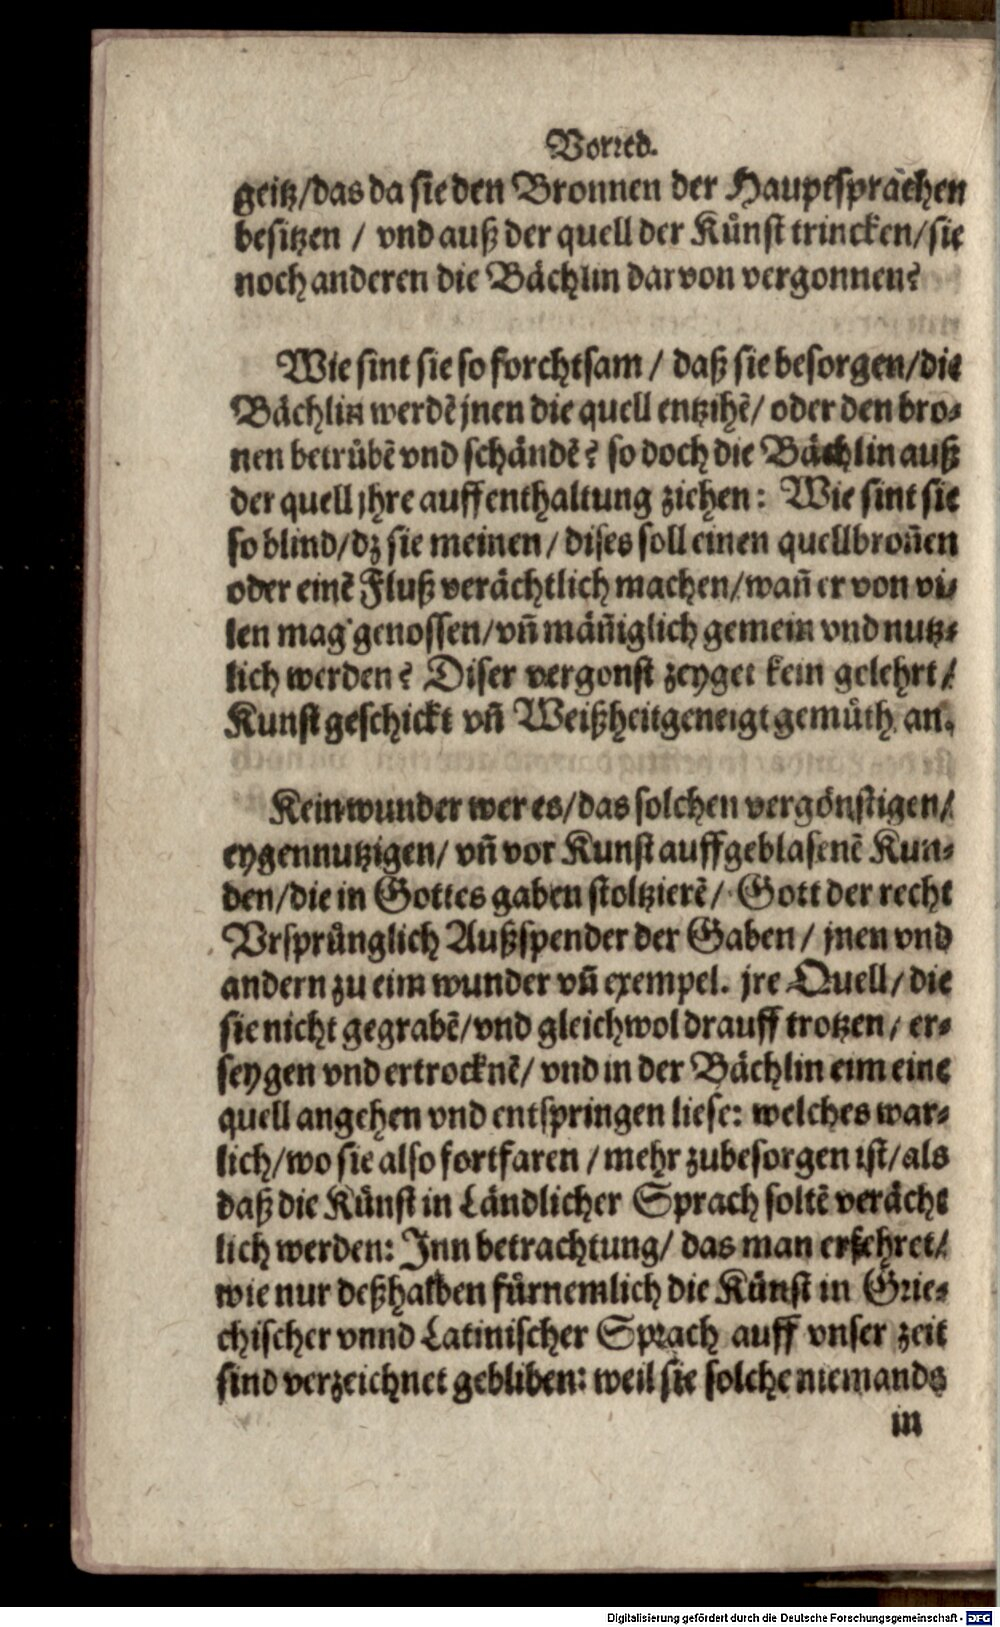 Vorred.
geitz/das da sie den Bronnen der Hauptsprächen
besitzen / vnd auß der quell der Künst trincken/sie
noch anderen die Bächlin darvon vergonnen?
Wie sint sie so forchtsam / daß sie besorgen/die
Bächlin werdē jnen die quell entzihē/ oder den bro-
nen betrübē vnd schändē? so doch die Bächlin auß
der quell jhre auffenthaltung ziehen: Wie sint sie
so blind/dz sie meinen/ dises soll einen quellbroñen
oder einē Fluß verächtlich machen/wañ er von vi-
len mag genossen/vñ mäñiglich gemein vnd nutz-
lich werden? Diser vergonst zeyget kein gelehrt/
Kunstgeschickt vñ Weißheitgeneigt gemüth an.
Kein wunder wer es/das solchen vergönstigen/
eygennutzigen/ vñ vor Kunst auffgeblasenē Kun-
den/die in Gottes gaben stoltzierē/ Gott der recht
Vrsprünglich Außspender der Gaben/ jnen vnd
andern zu eim wunder vñ exempel. jre Quell/die
sie nicht gegrabē/vnd gleichwol drauff trotzen/ er-
seygen vnd ertrocknē/ vnd in der Bächlin eim eine
quell angehen vnd entspringen liese: welches war-
lich/wo sie also fortfaren /mehr zubesorgen ist/als
daß die Künst in Ländlicher Sprach soltē verächt
lich werden: Inn betrachtung/ das man erfehret/
wie nur deßhalben fürnemlich die Künst in Grie-
chischer vnnd Latinischer Sprach auff vnser zeit
sind verzeichnet gebliben: weil sie solche niemands
in
Digitalisierung gefördert durch die Deutsche Forschungsgemeinschaft - DFG